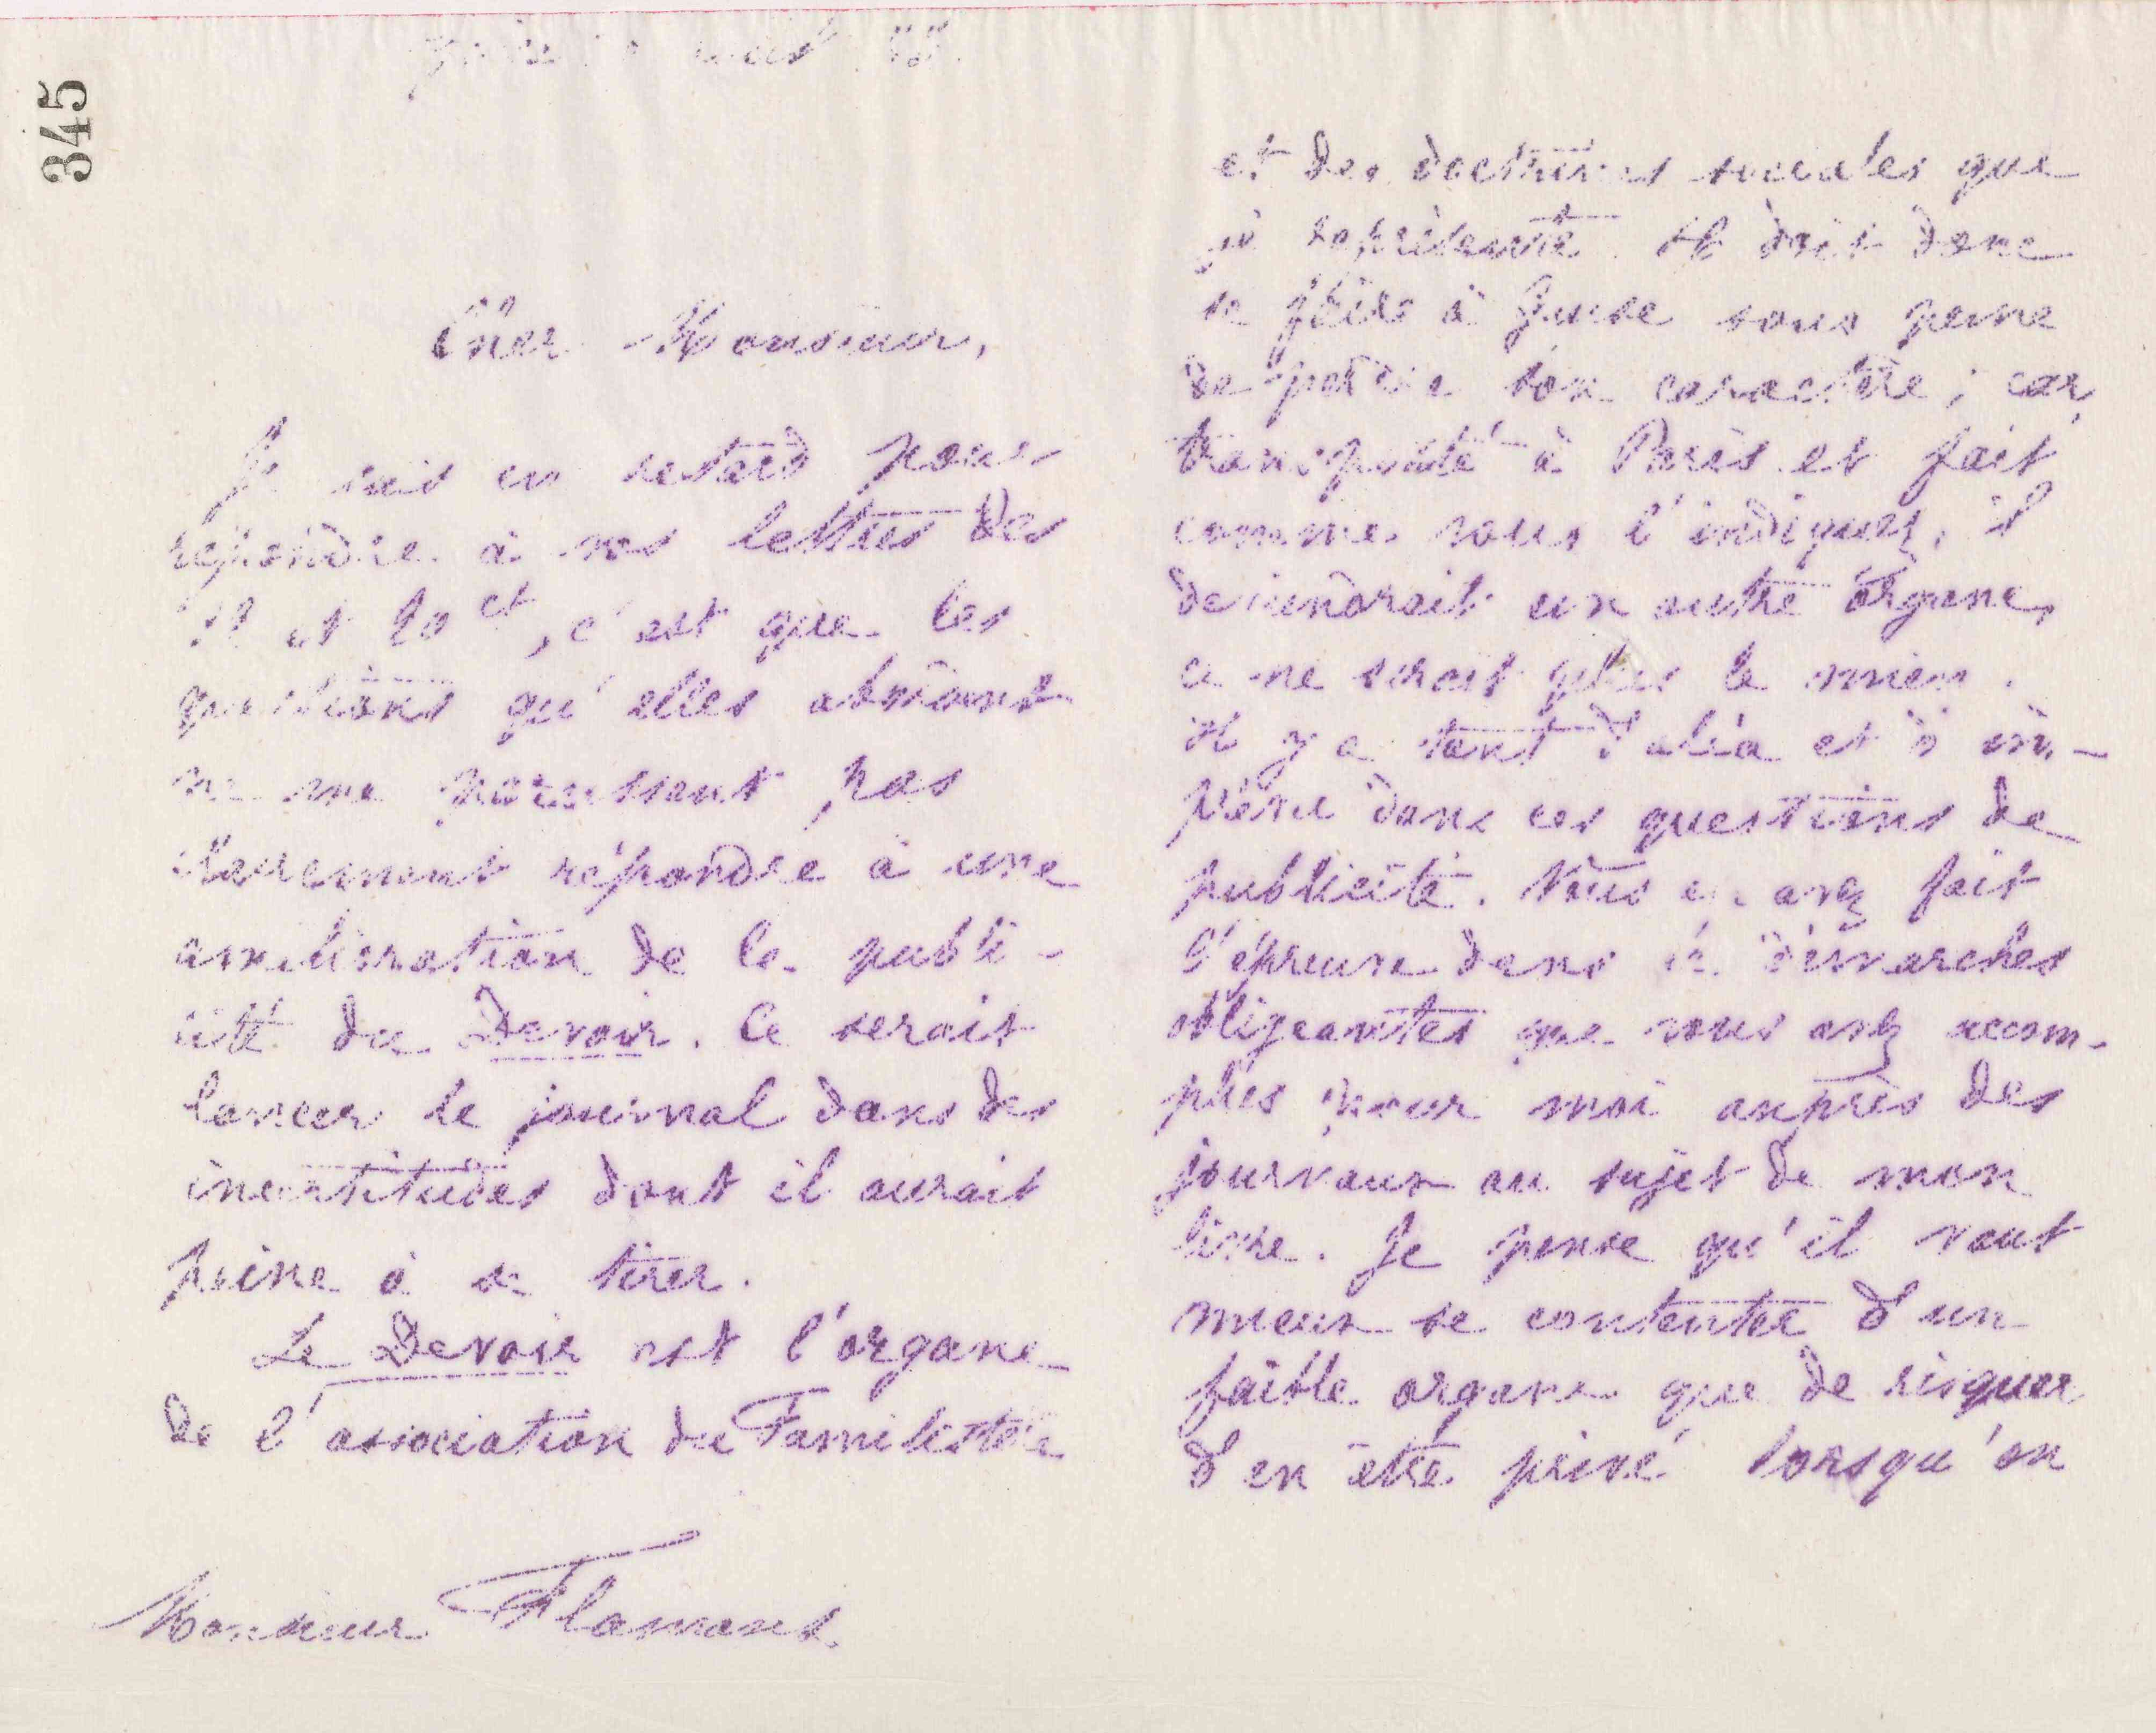 345
Cher Monsieur,
Je suis en retard pour
répondre à vos lettres des
et 20 ct, c'est que les
questions qu'elles
ne me paraissent pas
clairement répondre à une
amélioration de la publi-
cité du Devoir. Ce serait
lancer le journal dans des
incertitudes dont il aurait
peine à se tirer.
Le Devoir est l'organe
de l'association du Familistère
Monsieur Flamant.
et des doctrines sociales que
je représente. Il doit donc
se faire à Guise sous peine
de perdre son caractère; car,
transporté à Paris et fait
comme vous l'indiquez, il
deviendrait un autre organe,
ce ne serait plus le mien.
Il y a tant d'aléa et d'im-
prévu dans ces questions de
publicité. Vous en avez fait
l'épreuve dans les démarches
obligeantes que vous avez accom-
plies pour moi auprès des
journaux au sujet de mon
livre. Je pense qu'il vaut
mieux se contenter d'un
faible organe que de risquer
d'en être privé lorsqu'on